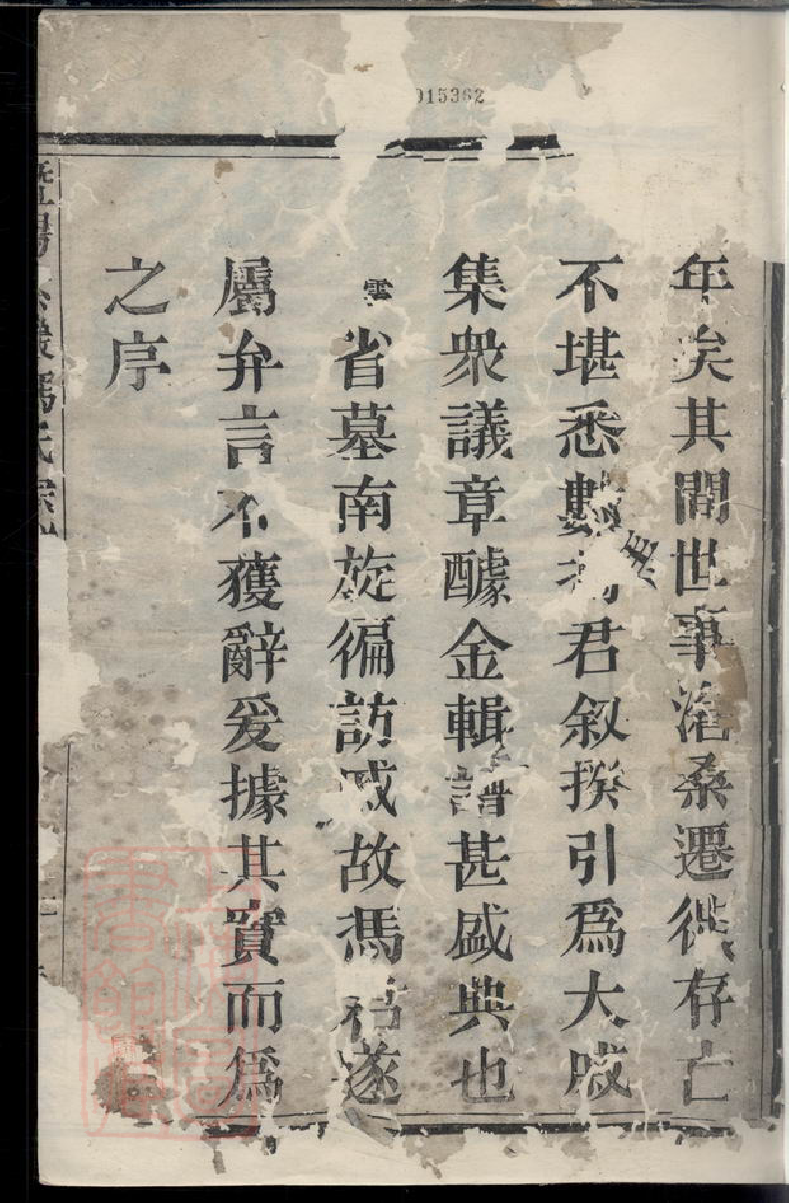 015362
年矣其間世事滄桑遷徙存亡
不堪悉數君叙揆引爲大戚
集衆議章醵金輯譜甚盛典也
雲省墓南旋徧訪戚故馮君遂
屬弁言不獲辭爰據其實而爲
之序
暨陽馮氏宗
上海圖書館藏